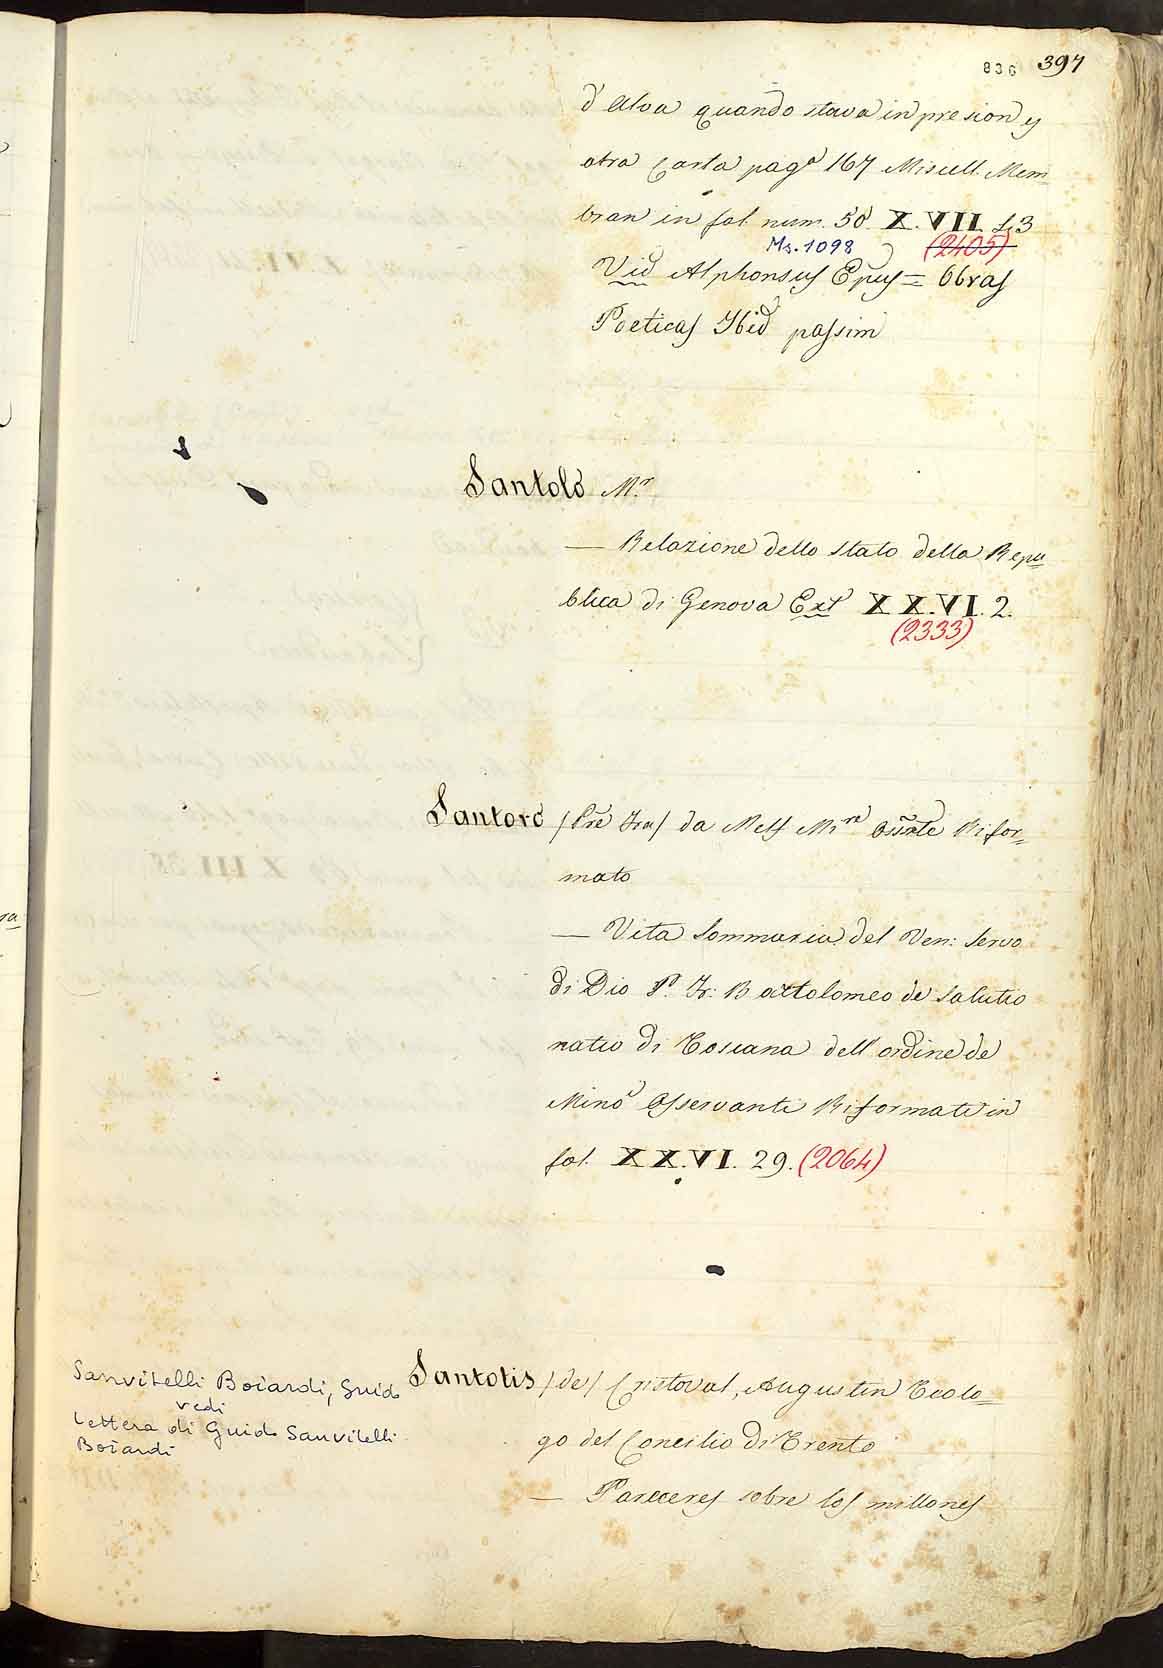 836 397
d'Alva quando stava in presion y
otra Carta pag.ª 167 Miscell. Mem-
bran in fol. num. 50. X.VII. 3
Ms. 1098 (2405)
Vid Alphonsus Epus = Obras
Poeticas Ibid passim
Santolo M.r
— Relazione dello stato della Repu=
blica di Genova Ext XX.VI. 2.
(2333)
Santoro /Pre Fra/ da Melf Min.re Oss.te Rifor=
mato
— Vita Sommaria del Ven: Servo
di Dio P. Fr: Bartolomeo de Salutio
natio di Toscana dell'ordine de
Mino Osservanti Riformati in
fol. XX.VI. 29. (2064)
Sanvitelli Boiardi, Guido
vedi
Lettera di Guido Sanvitelli
Boiardi
Santotis /de/ Cristoval, Augustin Teolo=
go del Concilio di Trento
— Pareceres sobre los millones